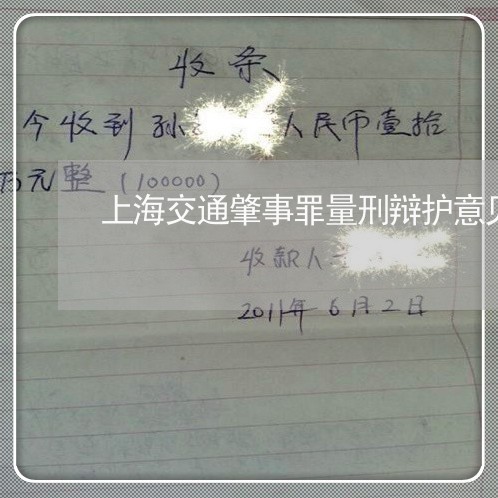 收条
今收到孙 人民币壹拾
万元整(100000)
上海交通肇事罪量刑辩护意见
收款人
2011年6月2日